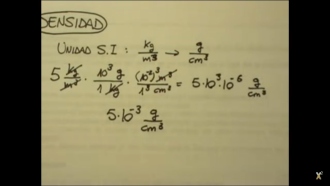 DENSIDAD
UNIDAD S.I : kg/m³ → g/cm³
5 kg/m³ · 10³ g/1 kg · (10⁻²)³ m³/1³ cm³ = 5·10³·10⁻⁶ g/cm³
5·10⁻³ g/cm³